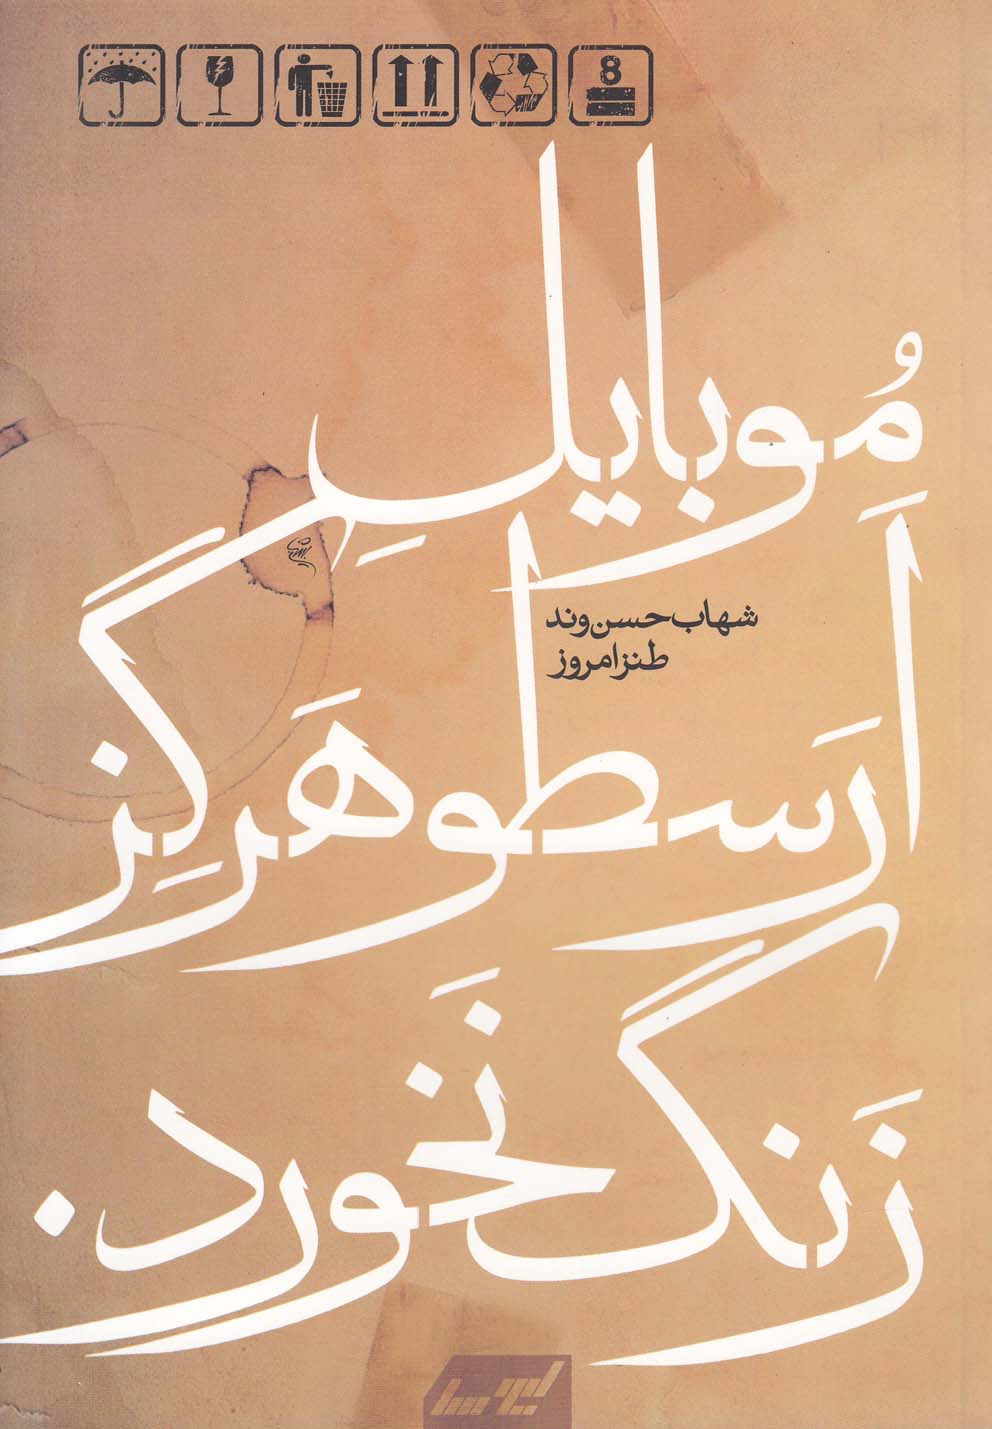 8
مُوبایلِ
اَرَسطو هَرگِز
زَنگ نَخورد.
شهاب حسن‌وند
طنز امروز